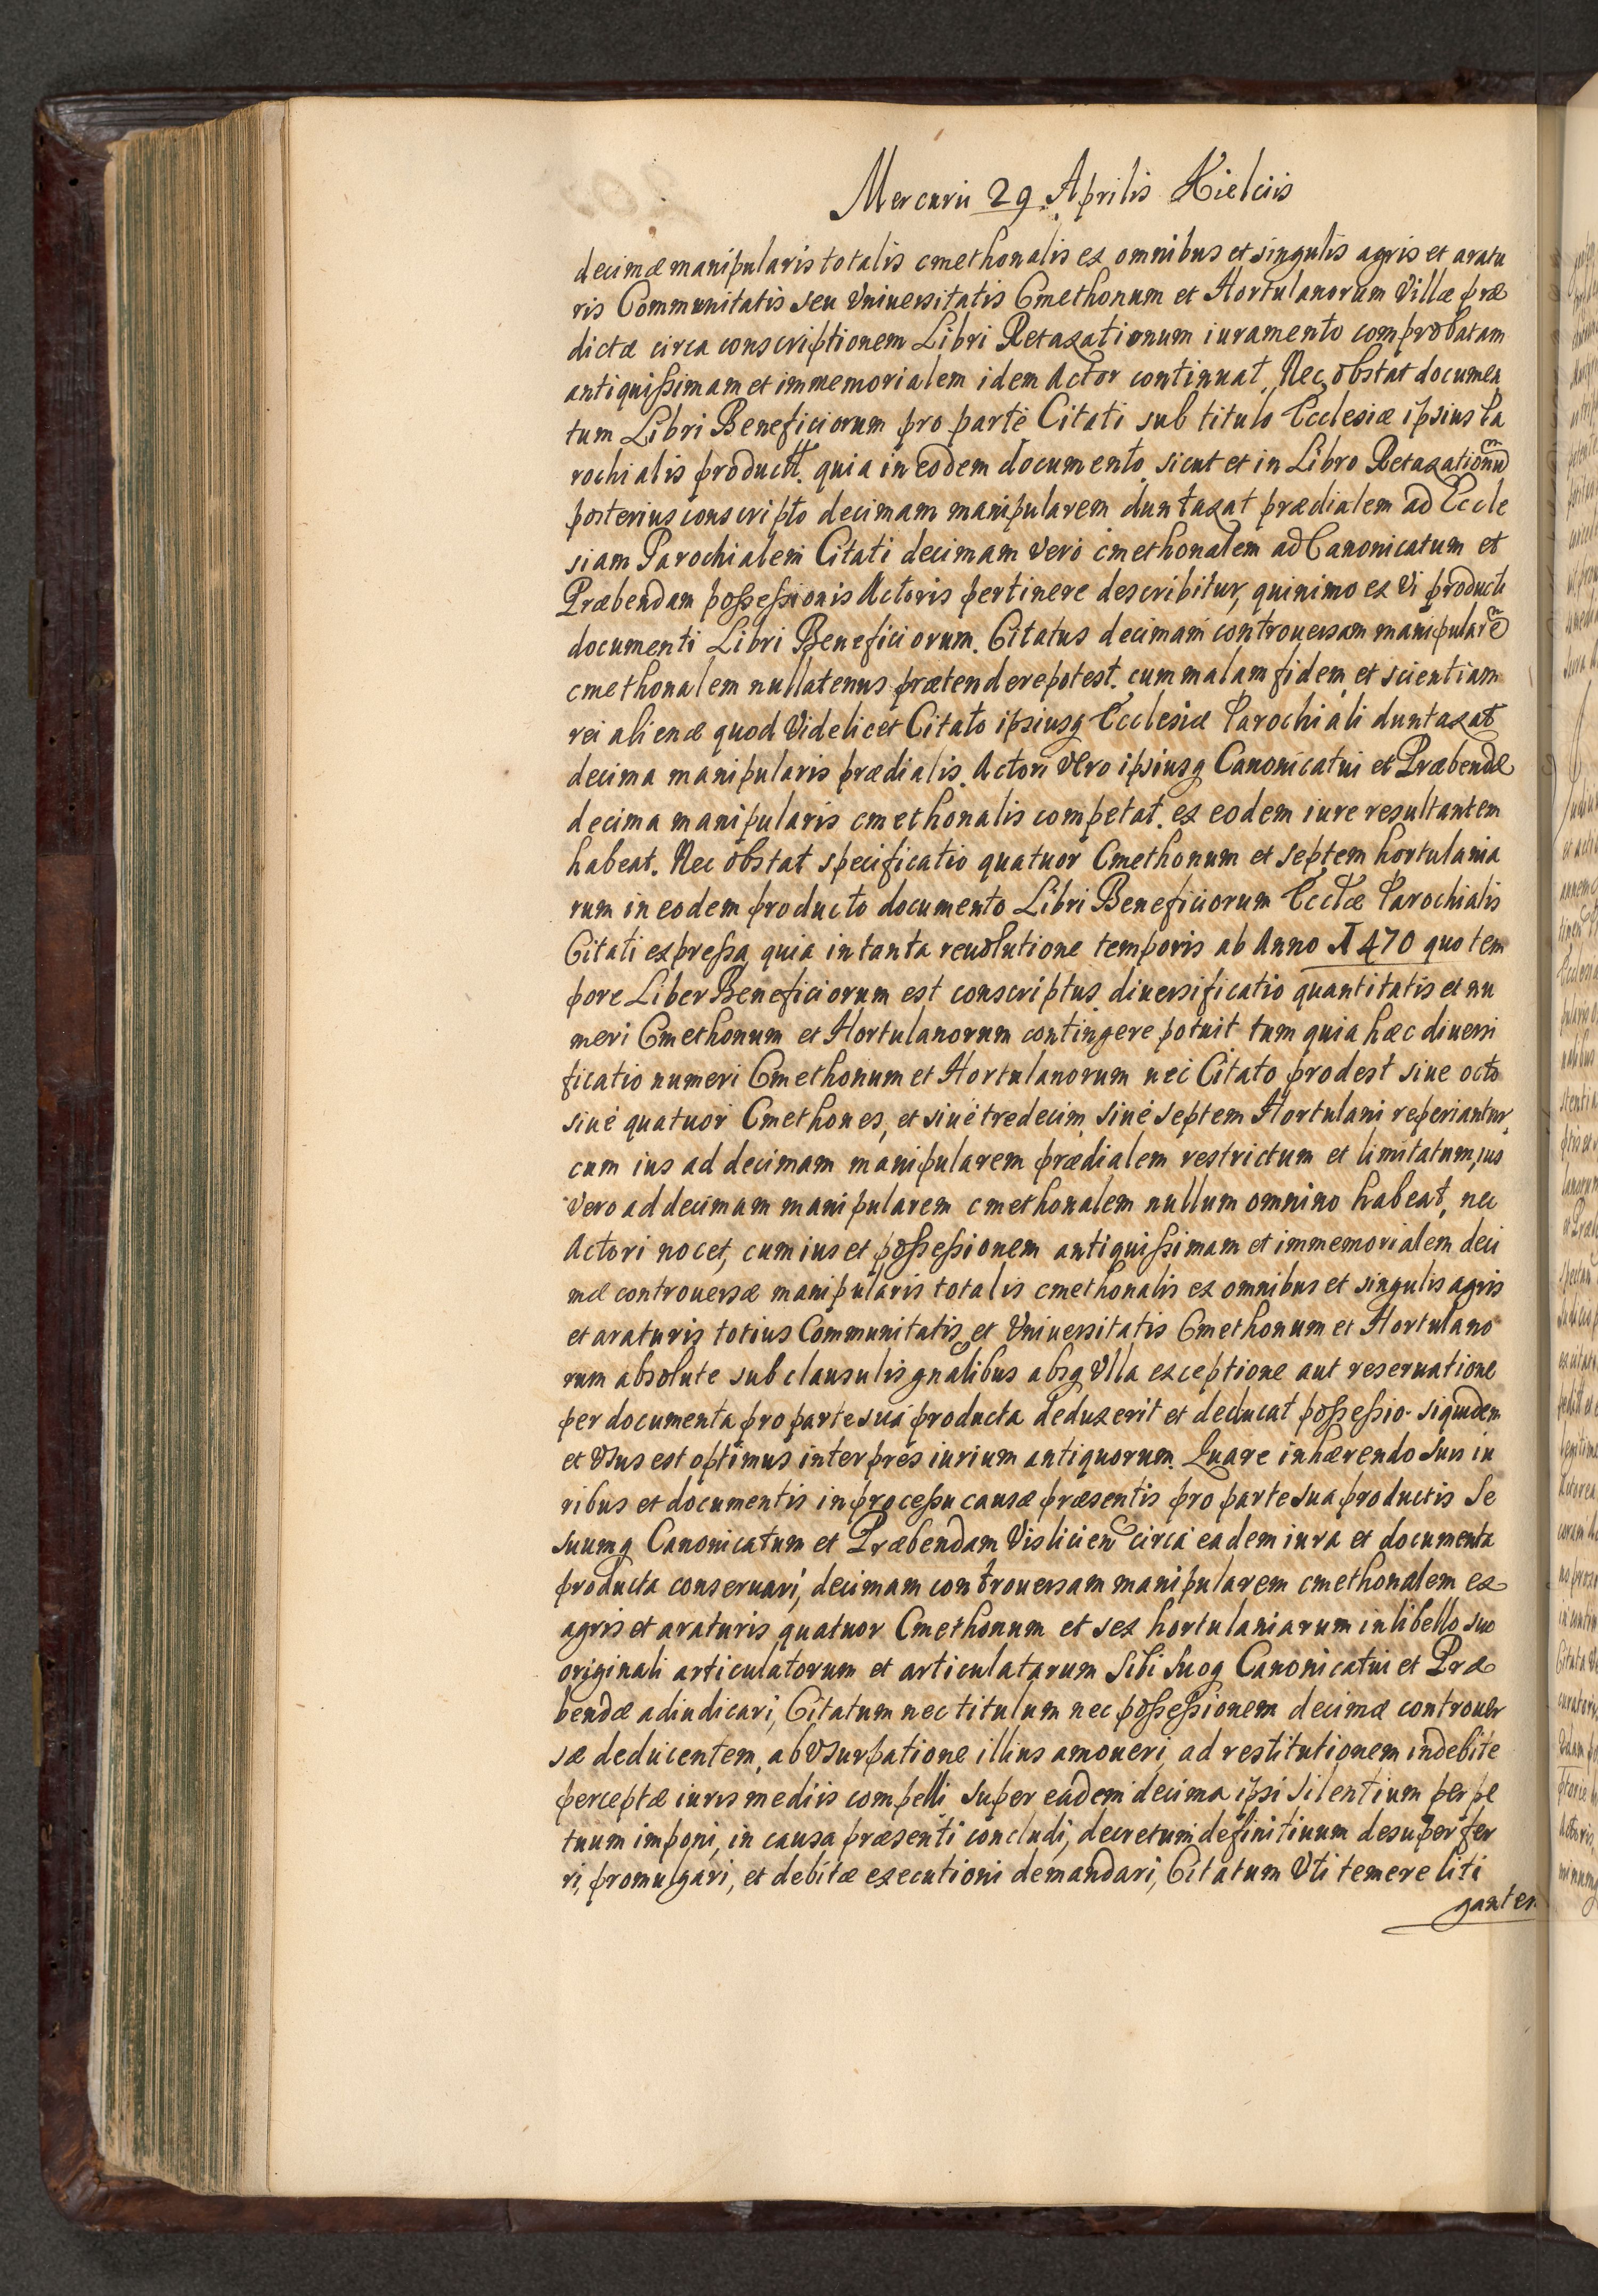 Mercurii 29 Aprilis Kielciis
decimæ manipularis totalis cmethonalis ex omnibus et singulis agris et aratu
ris Communitatis seu Vniuersitatis Cmethonum et Hortulanorum Villæ præ
dictæ circa conscriptionem Libri Retaxationum iuramento comprobatam
antiquißimam et immemorialem idem Actor continuat. Nec obstat documen
tum Libri Beneficiorum pro parte Citati sub titulo Ecclesiæ ipsius Pa
rochialis productũ. quia in eodem documento sicut et in Libro Retaxationũ
posterius conscripto decimam manipularem duntaxat prædialem ad Eccle
siam Parochialem Citati decimam vero cmethonalem ad Canonicatum et
Præbendam poßeßionis Actoris pertinere describitur, quinimo ex vi producti
documenti Libri Beneficiorum. Citatus decimam controuersam manipularẽ
cmethonalem nullatenus prætendere potest. cum malam fidem et scientiam
rei alienæ quod videlicet Citato ipsiusq Ecclesiæ Parochiali duntaxat
decima manipularis prædialis. Actori vero ipsiusq Canonicatui et Præbendæ
decima manipularis cmethonalis competat. ex eodem iure resultantem
habeat. Nec obstat specificatio quatuor Cmethonum et septem hortulania
rum in eodem producto documento Libri Beneficiorum Eccliæ Parochialis
Citati expreßa, quia in tanta reuolutione temporis ab Anno 1470 quo tem
pore Liber Beneficiorum est conscriptus diuersificatio quantitatis et nu
meri Cmethonum et Hortulanorum contingere potuit tum quia hæc diuersi
ficatio numeri Cmethonum et Hortulanorum nec Citato prodest siue octo
siue quatuor Cmethones, et siue tredecim siue septem Hortulani reperiantur,
cum ius ad decimam manipularem prædialem restrictum et limitatum, ius
vero ad decimam manipularem cmethonalem nullum omnino habeat, nec
Actori nocet, cum ius et poßeßionem antiquißimam et immemorialem deci
mæ controuersæ manipularis totalis cmethonalis ex omnibus et singulis agris
et araturis totius Communitatis et Vniuersitatis Cmethonum et Hortulano
rum absolute sub clausulis gnalibus absq vlla exceptione aut reseruatione
per documenta pro parte sua producta deduxerit et deducat poßeßio siquidem
et vsus est optimus interpres iurium antiquorum. Quare inhærendo suis iu
ribus et documentis in proceßu causæ præsentis pro parte sua productis Se
suumq Canonicatum et Præbendam Vislicien circa eadem iura et documenta
producta conseruari, decimam controuersam manipularem cmethonalem ex
agris et araturis quatuor Cmethonum et sex hortulaniarum in libello suo
originali articulatorum et articulatarum Sibi Suoq Canonicatui et Præ
bendæ adiudicari, Citatum nec titulum nec poßeßionem decimæ controuer
sæ deducentem, ab vsurpatione illius amoueri, ad restitutionem indebite
perceptæ iuris mediis compelli super eadem decima ipsi silentium perpe
tuum imponi, in causa præsenti concludi, decretum definitiuum desuper fer
ri, promulgari, et debitæ executioni demandari, Citatum vti temere liti
ganten